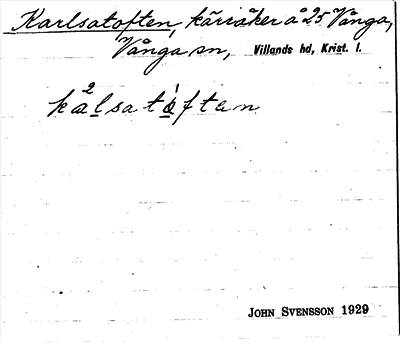 Karlsatoften, kärråker å 25 Vånga,
Vånga sn, Villands hd, Krist. l.
kalsatoften
JOHN SVENSSON 1929